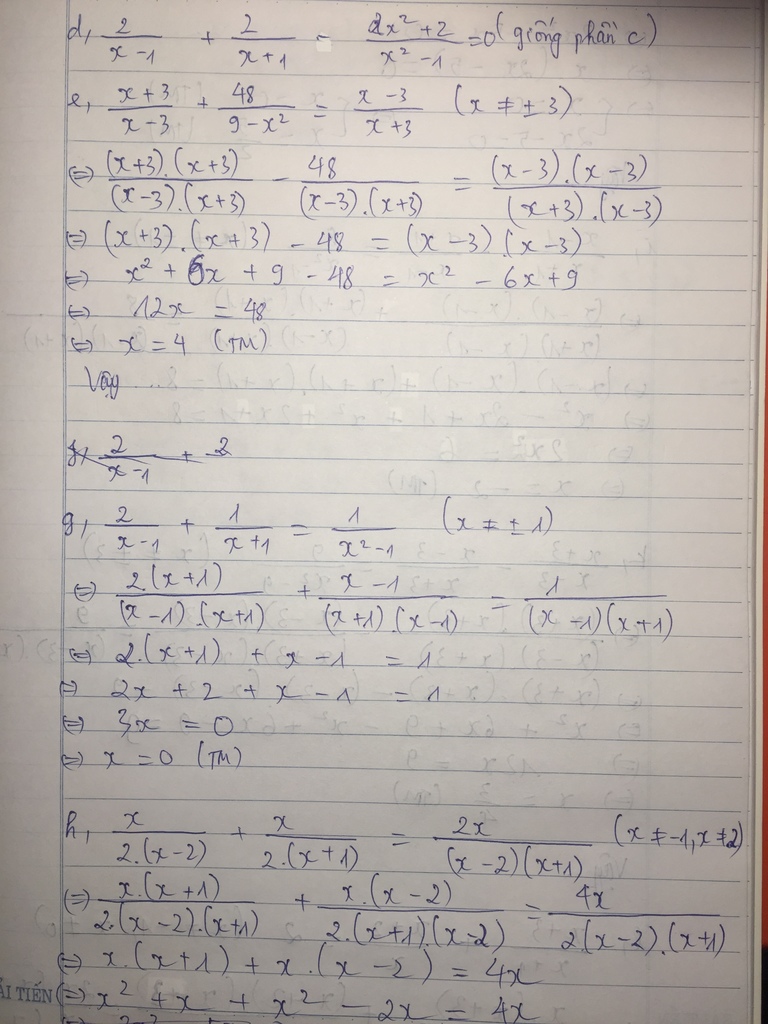 d, 2/(x-1) + 2/(x+1) - (2x² + 2)/(x² - 1) = 0 (giống phần c)
e, (x+3)/(x-3) + 48/(9-x²) = (x-3)/(x+3) (x ≠ ± 3)
⇔ (x+3).(x+3)/((x-3).(x+3)) - 48/((x-3).(x+3)) = (x-3).(x-3)/((x+3).(x-3))
⇔ (x+3).(x+3) - 48 = (x-3).(x-3)
⇔ x² + 6x + 9 - 48 = x² - 6x + 9
⇔ 12x = 48
⇔ x = 4 (TM)
Vậy
f, 2/(x-1) + 2
g, 2/(x-1) + 1/(x+1) = 1/(x²-1) (x ≠ ± 1)
⇔ 2(x+1)/((x-1).(x+1)) + (x-1)/((x+1).(x-1)) = 1/((x-1)(x+1))
⇔ 2.(x+1) + x - 1 = 1
⇔ 2x + 2 + x - 1 = 1
⇔ 3x = 0
⇔ x = 0 (TM)
h, x/(2.(x-2)) + x/(2.(x+1)) = 2x/((x-2)(x+1)) (x ≠ -1, x ≠ 2)
⇔ x.(x+1)/(2.(x-2).(x+1)) + x.(x-2)/(2.(x+1)(x-2)) = 4x/(2(x-2).(x+1))
⇔ x.(x+1) + x.(x-2) = 4x
ẢI TIẾN ⇔ x² + x + x² - 2x = 4x